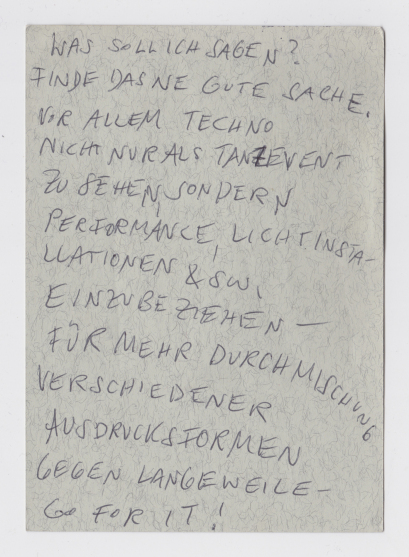 WAS SOLL ICH SAGEN?
FINDE DAS NE GUTE SACHE.
VOR ALLEM TECHNO
NICHT NUR ALS TANZEVENT
ZU SEHEN, SONDERN
PERFORMANCE, LICHTINSTA-
LLATIONEN & SW.
EINZUBEZIEHEN —
FÜR MEHR DURCHMISCHUNG
VERSCHIEDENER
AUSDRUCKSFORMEN
GEGEN LANGEWEILE –
GO FOR IT!